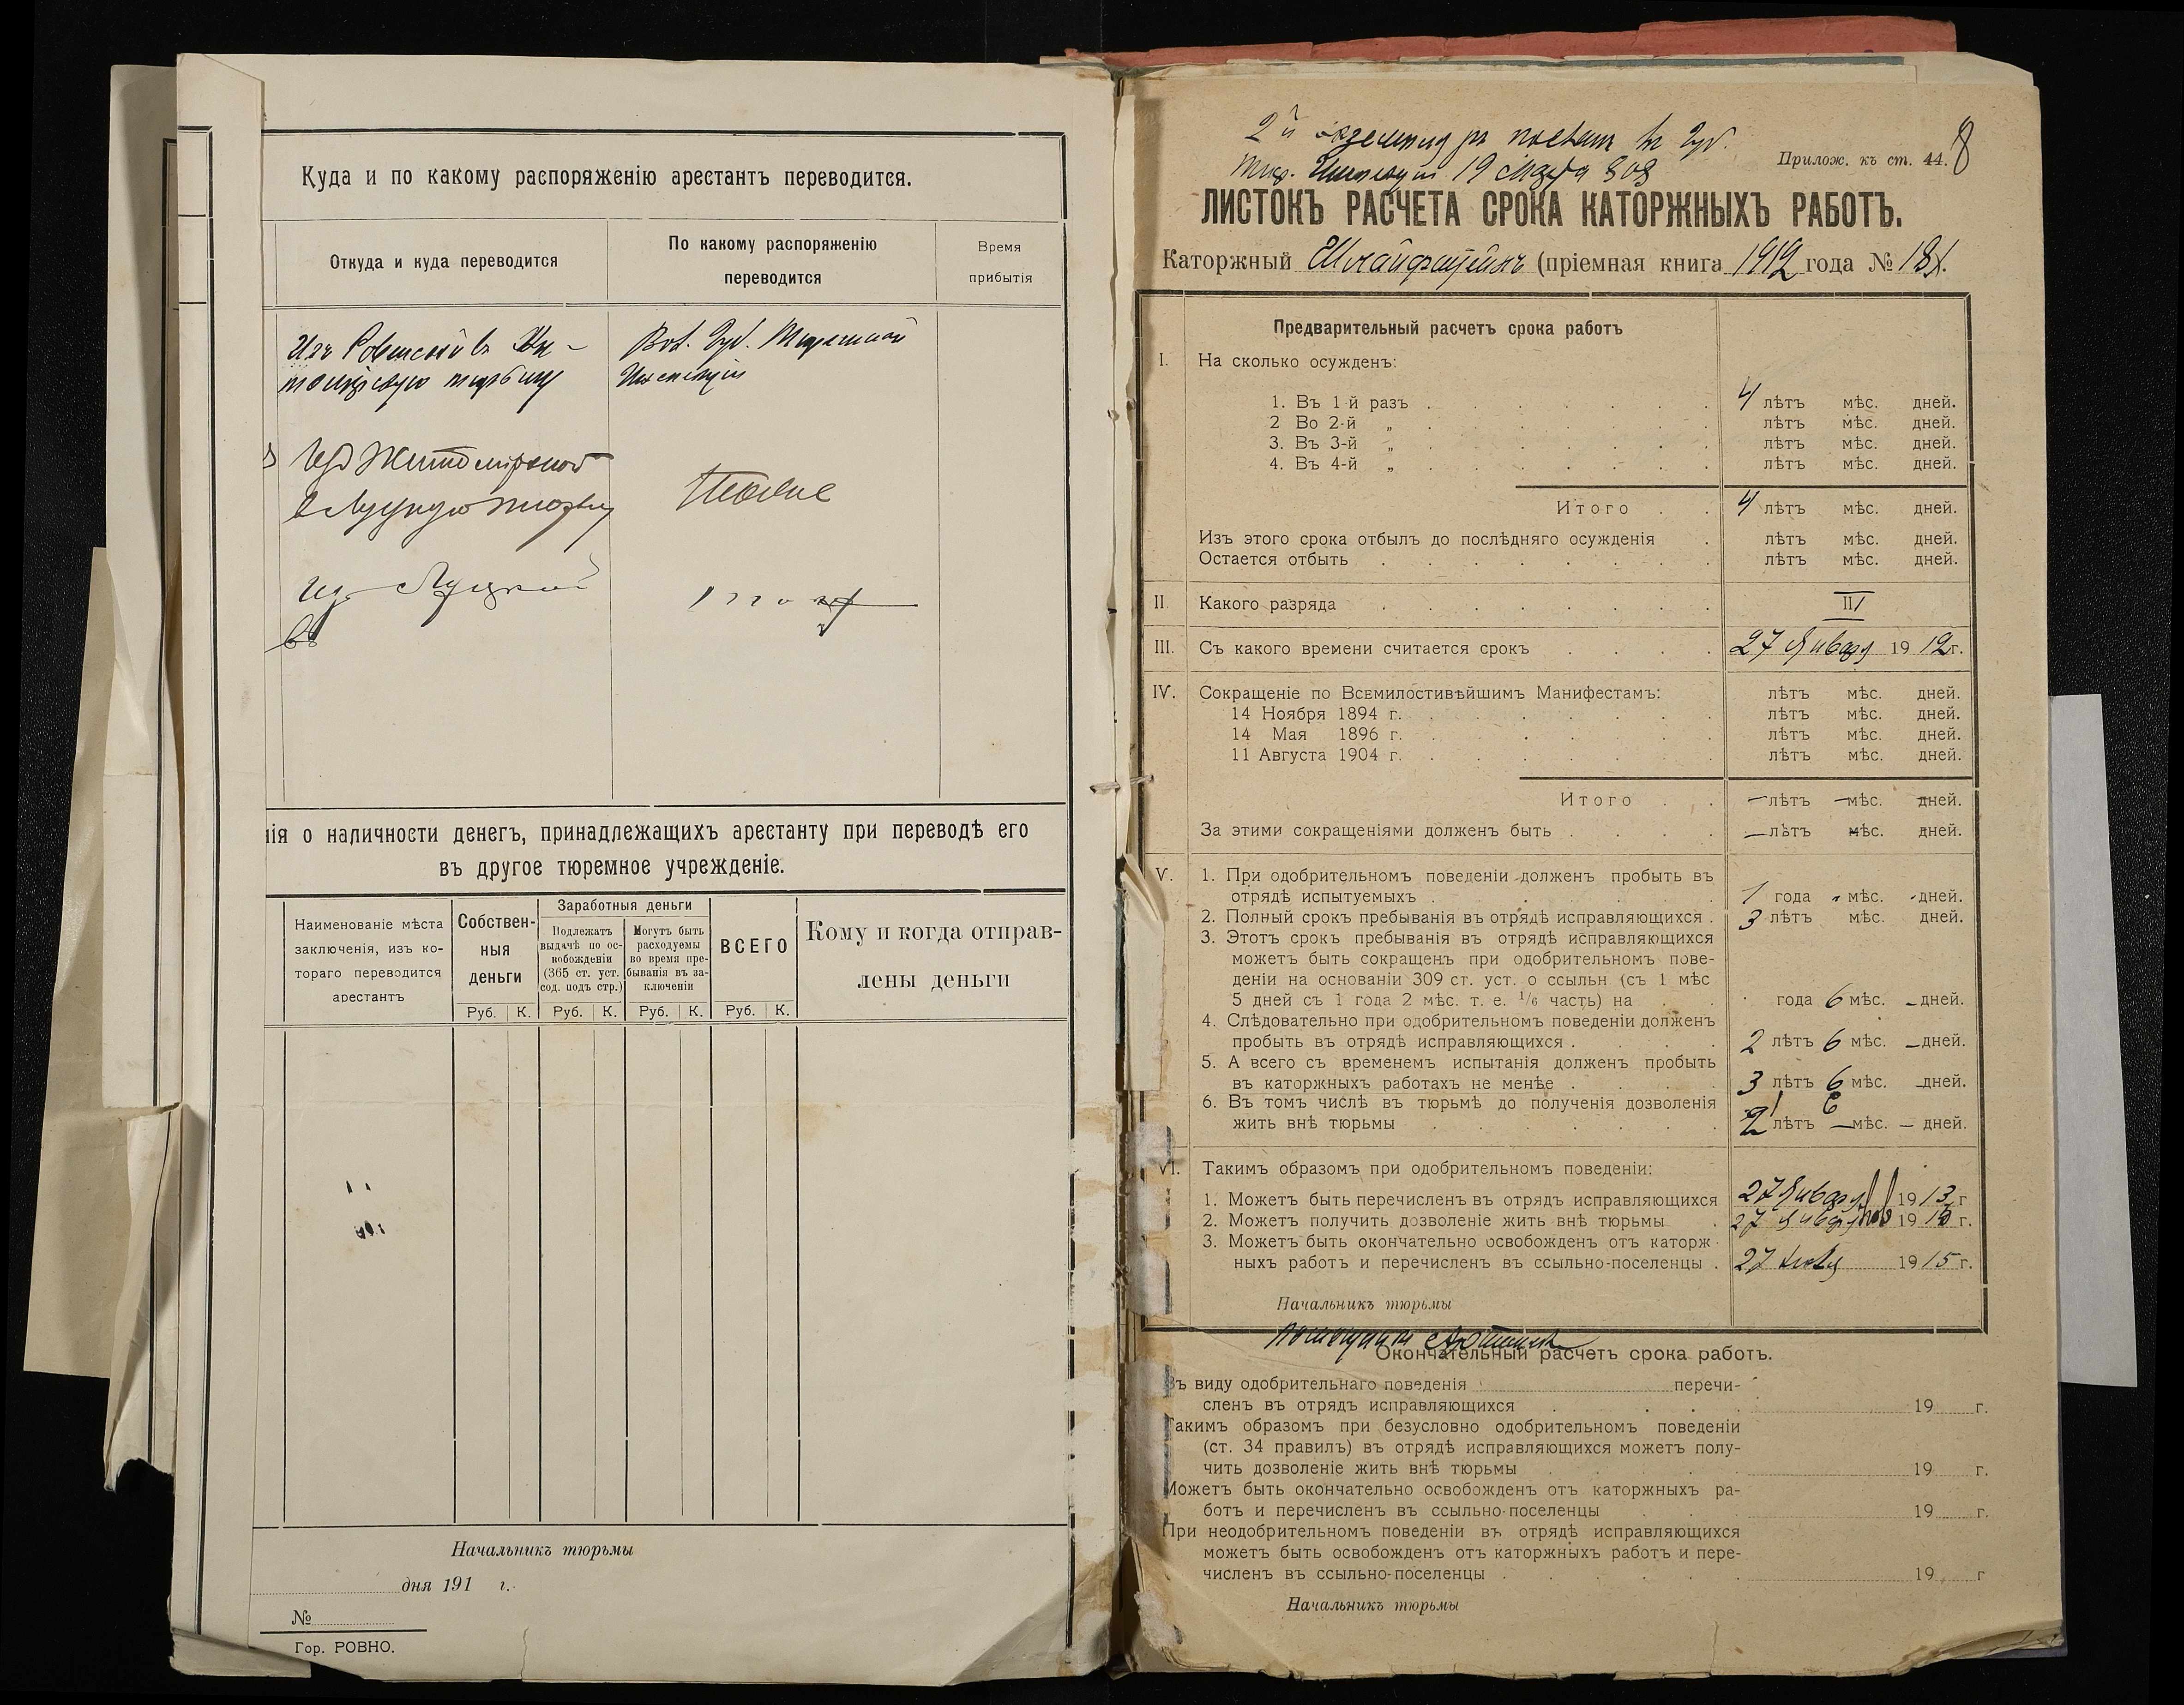 Куда и по какому распоряженію арестантъ переводится.
Откуда и куда переводится
По какому распоряженію
переводится
Время
прибытія
Изъ Ровенской въ Жи-
томірскую тюрьму
Вол. Губ. Тюремной
Инспекціи
Изъ Житомірской
в Луцкую тюрьму
Тоже
Из Луцкой
въ
нія о наличности денегъ, принадлежащихъ арестанту при переводѣ его
въ другое тюремное учрежденіе.
Наименованіе мѣста
заключенія, изъ ко-
тораго переводится
арестантъ
Собствен-
ныя
деньги
Заработныя деньги
Подлежатъ
выдачѣ по ос-
вобожденіи
(365 ст. уст.
сод. подъ стр.)
Могутъ быть
расходуемы
во время пре-
быванія въ за-
ключеніи
ВСЕГО
Кому и когда отправ-
лены деньги
Руб. К. Руб. К. Руб. К. Руб. К.
Начальникъ тюрьмы
дня 191 г.
№
Гор. РОВНО.
2й экземпляръ въ Губ.
Тюр. Инспекцію 19 Марта 808
Прилож. къ ст. 44. 8
ЛИСТОКЪ РАСЧЕТА СРОКА КАТОРЖНЫХЪ РАБОТЪ.
Каторжный (пріемная книга 1912 года № 181.
Предварительный расчетъ срока работъ
I. На сколько осужденъ:
1. Въ 1-й разъ . . . . . . . 4 лѣтъ мѣс. дней.
2 Во 2-й „ . . . . . . . лѣтъ мѣс. дней.
3. Въ 3-й „ . . . . . . . лѣтъ мѣс. дней.
4. Въ 4-й „ . . . . . . . лѣтъ мѣс. дней.
Итого . . 4 лѣтъ мѣс. дней.
Изъ этого срока отбылъ до послѣдняго осужденія . лѣтъ мѣс. дней.
Остается отбыть . . . . . . . . лѣтъ мѣс. дней.
II. Какого разряда . . . . . . . . III
III. Съ какого времени считается срокъ . . . . 27 Января 1912г.
IV. Сокращеніе по Всемилостивѣйшимъ Манифестамъ: лѣтъ мѣс. дней.
14 Ноября 1894 г. . . . . . . . лѣтъ мѣс. дней.
14 Мая 1896 г. . . . . . . . лѣтъ мѣс. дней.
11 Августа 1904 г. . . . . . . . лѣтъ мѣс. дней.
Итого . . — лѣтъ — мѣс. — дней.
За этими сокращеніями долженъ быть . . . . — лѣтъ мѣс. дней.
V. 1. При одобрительномъ поведеніи долженъ пробыть въ
отрядѣ испытуемыхъ . . . . . . . 1 года „ мѣс. - дней.
2. Полный срокъ пребыванія въ отрядѣ исправляющихся . 3 лѣтъ мѣс. дней.
3. Этотъ срокъ пребыванія въ отрядѣ исправляющихся
можетъ быть сокращенъ при одобрительномъ пове-
деніи на основаніи 309 ст. уст. о ссыльн (съ 1 мѣс
5 дней съ 1 года 2 мѣс. т. е. 1/6 часть) на . . года 6 мѣс. – дней.
4. Слѣдовательно при одобрительномъ поведеніи долженъ
пробыть въ отрядѣ исправляющихся . . . . 2 лѣтъ 6 мѣс. – дней.
5. А всего съ временемъ испытанія долженъ пробыть
въ каторжныхъ работахъ не менѣе . . . . 3 лѣтъ 6 мѣс. – дней.
6. Въ томъ числѣ въ тюрьмѣ до полученія дозволенія 1 6
жить внѣ тюрьмы . . . . . . . 2 лѣтъ — мѣс. — дней.
VI. Такимъ образомъ при одобрительномъ поведеніи:
1. Можетъ быть перечисленъ въ отрядъ исправляющихся 27 Января 1913 г
2. Можетъ получить дозволеніе жить внѣ тюрьмы . 27 Января 19 г.
3. Можетъ быть окончательно освобожденъ отъ каторж-
ныхъ работъ и перечисленъ въ ссыльно-поселенцы . 27 Іюля 1915 г.
Начальникъ тюрьмы
Помощникъ
Окончательный расчетъ срока работъ.
Въ виду одобрительнаго поведенія перечи-
сленъ въ отрядъ исправляющихся . . . . 19 г.
Такимъ образомъ при безусловно одобрительномъ поведеніи
(ст. 34 правилъ) въ отрядѣ исправляющихся можетъ полу-
чить дозволеніе жить внѣ тюрьмы . . . . . 19 г.
Можетъ быть окончательно освобожденъ отъ каторжныхъ ра-
ботъ и перечисленъ въ ссыльно-поселенцы . . . 19 г.
При неодобрительномъ поведеніи въ отрядѣ исправляющихся
можетъ быть освобожденъ отъ каторжныхъ работъ и пере-
численъ въ ссыльно-поселенцы . . . . . . 19 г
Начальникъ тюрьмы